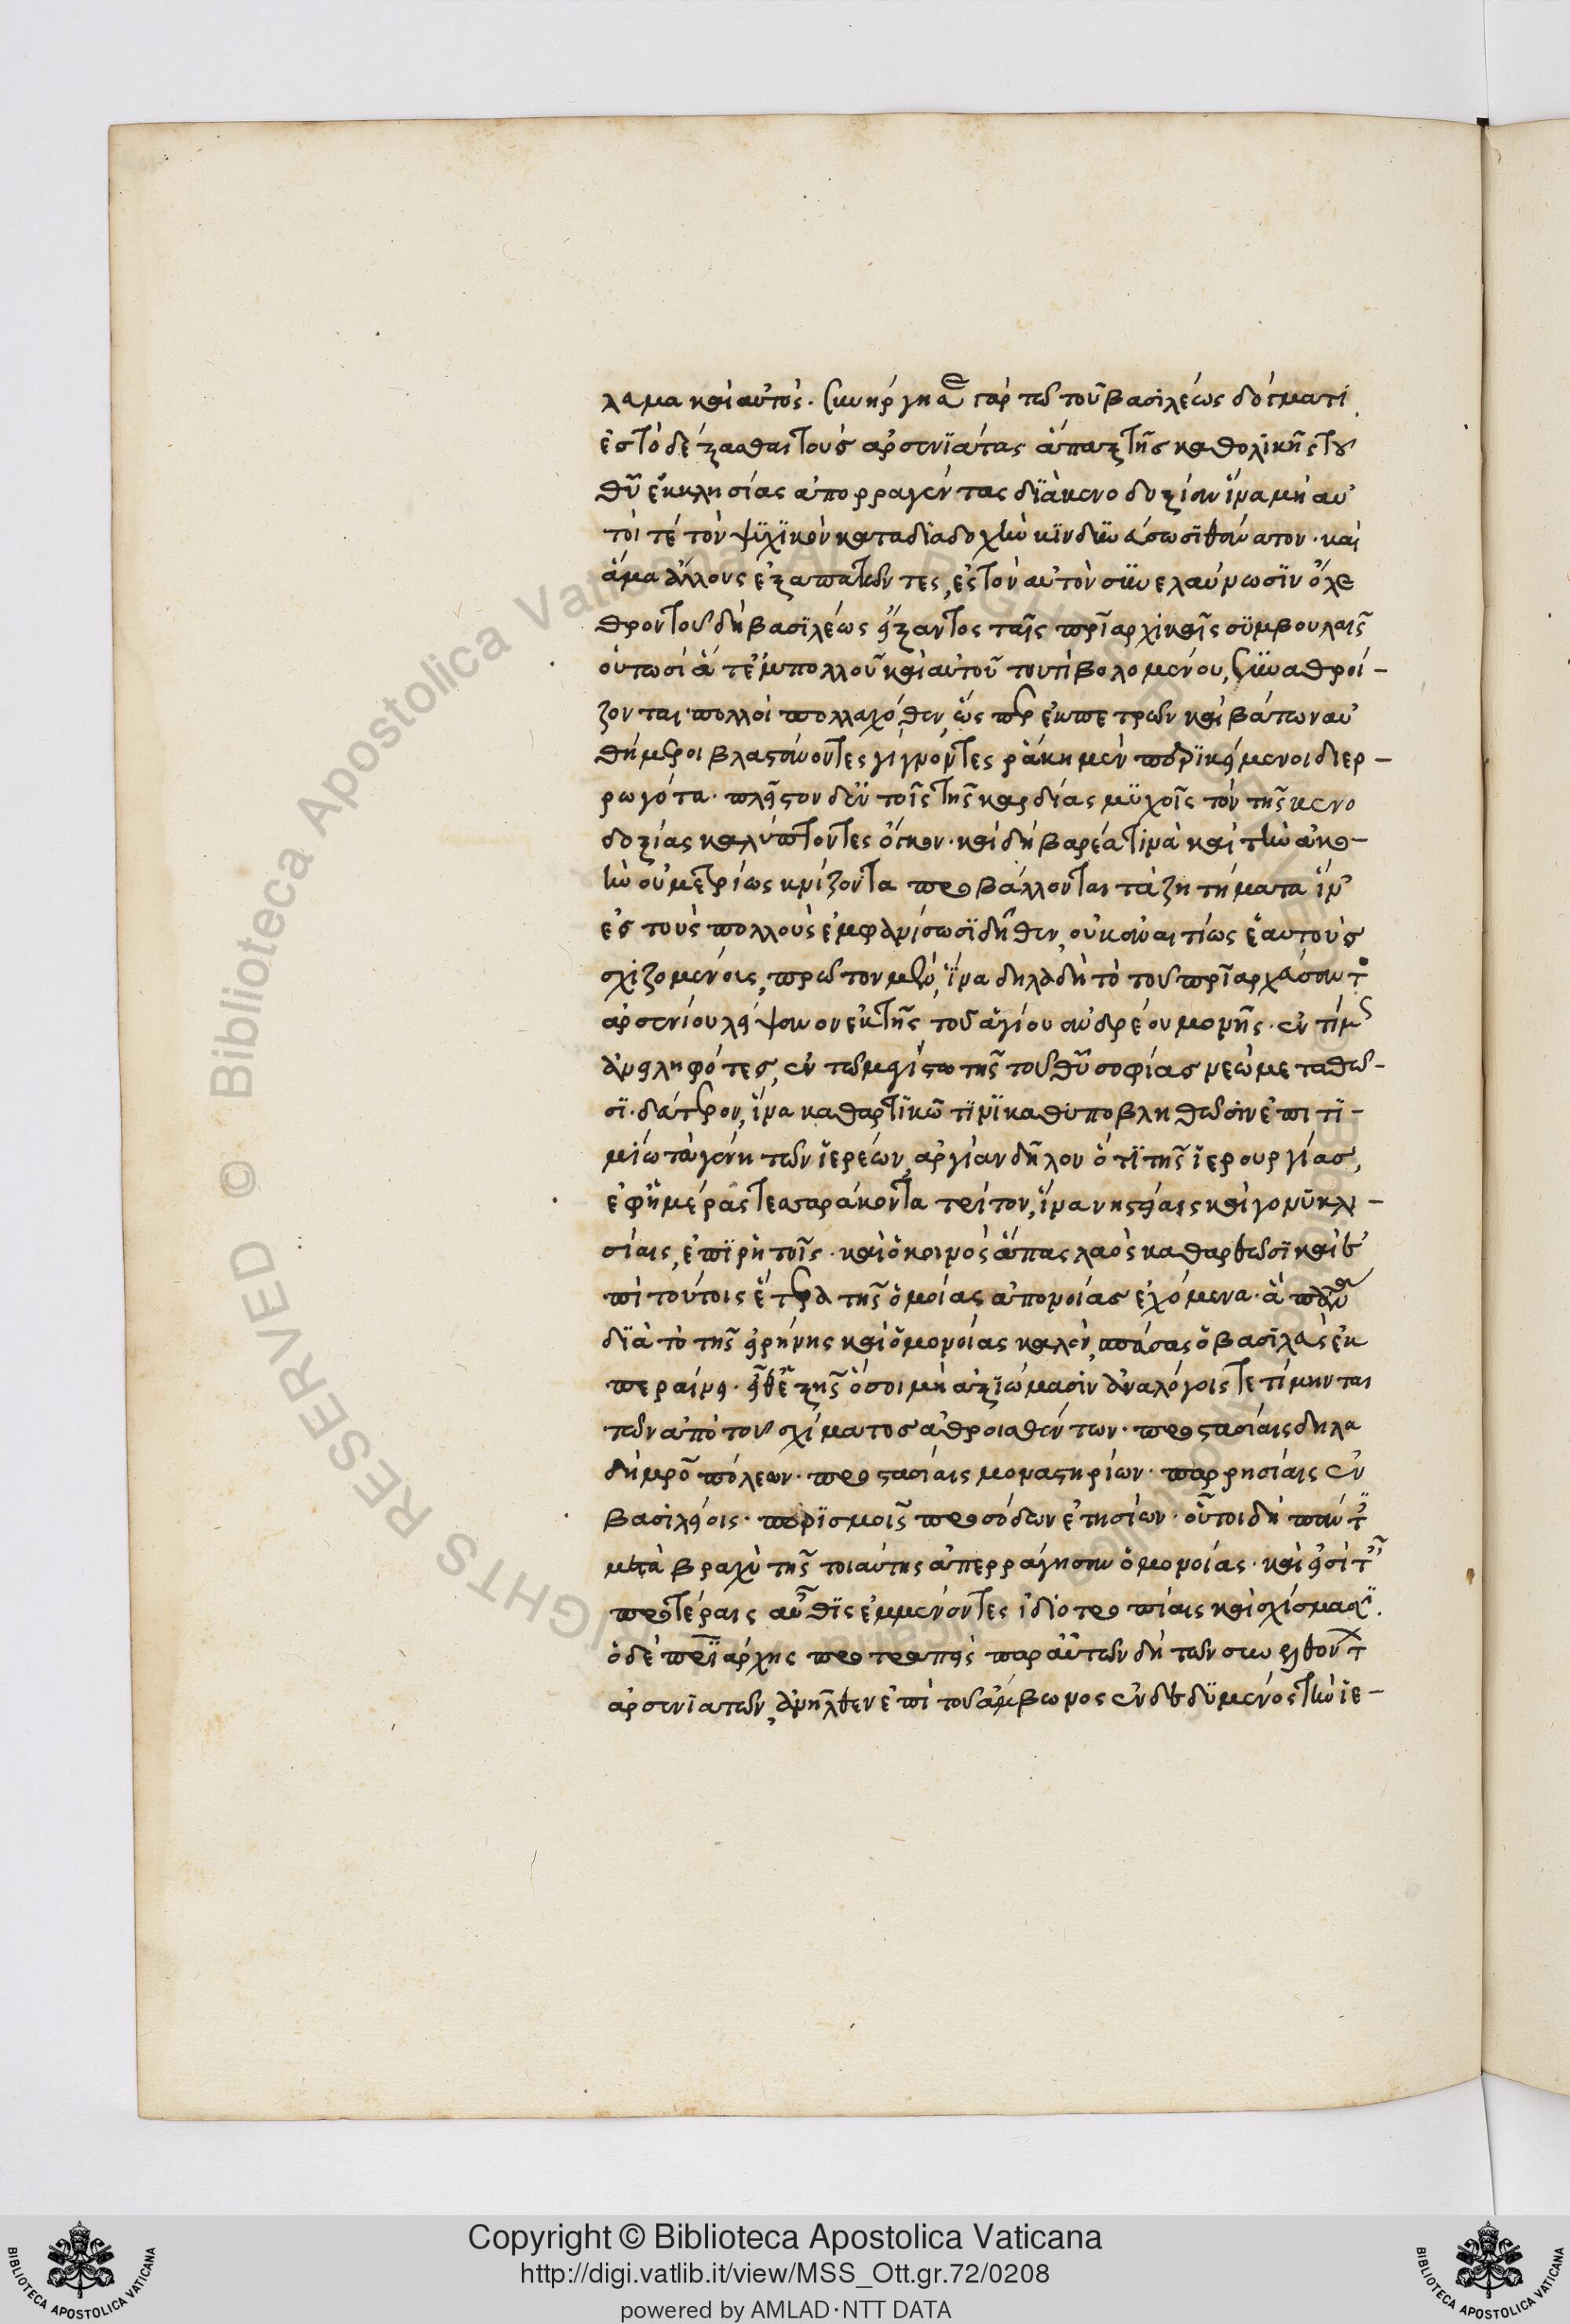 λαμα καὶ αὐτός. συνήργησε γὰρ τῶ τοῦ βασιλέως δόγματι
ἐς τὸ δέξασθαι τοὺς ἀρσενιάτας ἅπαξ τῆς καθολικῆς τοῦ
θῦ ἐκκλησίας ἀπορραγέντας διὰ κενοδοξίαν ἵνα μὴ αὐ
τοί τέ τὸν ψυχικὸν κατὰ διαδοχὴν κινδυνεύσωσι θάνατον. καὶ
ἅμα ἄλλους ἐξαπατῶντες, ἐς τὸν αὐτὸν συνελαύνωσιν ὄλε
θρον τοῦ δὴ βασιλέως εἴξαντος ταῖς πρϊαρχικαῖς συμβουλαῖς
οὑτωσὶ ἅτε ἐκ πολλοῦ καὶ αὐτοῦ τουτὶ βολομένου, συναθροί-
ζονται πολλοὶ πολλαχόθεν, ὥς περ ἐκ πετρῶν καὶ βάτων αὐ
θήμεροι βλαστάνοντες γίγνοντες ῥάκη μὲν περικείμενοι διερ-
ρωγότα. πλεῖστον δ' ἐν τοῖς τῆς καρδίας μυχοῖς τὸν τῆς κενο
δοξίας καλύπτοντες ὄγκον. καὶ δὴ βαρέα τινὰ καὶ τὴν ἀκο-
ὴν οὐ μετρίως κνίζοντα προβάλλονται τὰ ζητήματα ἵν'
ἐς τοὺς πολλοὺς ἐμφανίσωσι δῆθεν, οὐκ ἀναιτίως ἑαυτοὺς
σχιζομένοις, πρῶτον μὲν, ἵνα δηλαδὴ τὸ τοῦ πρϊαρχεύσαντ
ἀρσενίου λείψανον ἐκ τῆς τοῦ ἁγίου ἀνδρέου μονῆς. ἐντίμως
ἀνειληφότες, ἐν τῶ μεγίστω τῆς τοῦ θῦ σοφίας νεὼ μεταθῶ-
σι. δεύτερον, ἵνα καθαρτικῶ τινι καθυποβληθῶσιν ἐπιτι-
μίω τὰ γένη τῶν ἱερέων, ἀργίαν δηλονότι τῆς ἱερουργίας,
ἐφ' ἡμέρας τεσσαράκοντα τρίτον, ἵνα νηστείαις καὶ γονυκλι-
σίαις, ἐπὶ ῥητοῖς. καὶ ὁ κοινὸς ἅπας λαὸς καθαρθῶσι καὶ ἐ
πὶ τούτοις ἕτερα τῆς ὁμοίας ἀπονοίας ἐχόμενα. ἃ
διὰ τὸ τῆς εἰρήνης καὶ ὁμονοίας καλὸν, πάσας ὁ βασιλεὺς ἐκ
περαίνει. εἶθ' ἑξῆς ὅσοι μὴ ἀξιώμασιν ἀναλόγοις τετίμηνται
τῶν ἀπὸ τοῦ σχίματος ἀθροισθέντων. προστασίαις δηλα
δὴ μρο πόλεων. προστασίαις μοναστηρίων. παρρησίαις ἐν
βασιλείοις. πορισμοῖς προσόδων ἐτησίων. οὗτοι δὴ πάντ
μετὰ βραχὺ τῆς τοιαύτης ἀπερράγησαν ὁμονοίας. καὶ εἰσὶ τ
προτέραις αὖθις ἐμμένοντες ἰδιοτροπίαις καὶ σχίσμασι.
ὁ δὲ πρϊάρχης προτραπεὶς παρ' αὐτῶν δὴ τῶν συνελθόντ
ἀρσενιατῶν, ἀνῆλθεν ἐπὶ τοῦ ἄμβωνος ἐνδεδυμένος τὴν ἱε-
Copyright © Biblioteca Apostolica Vaticana
http://digi.vatlib.it/view/MSS_Ott.gr.72/0208
powered by AMLAD·NTT DATA